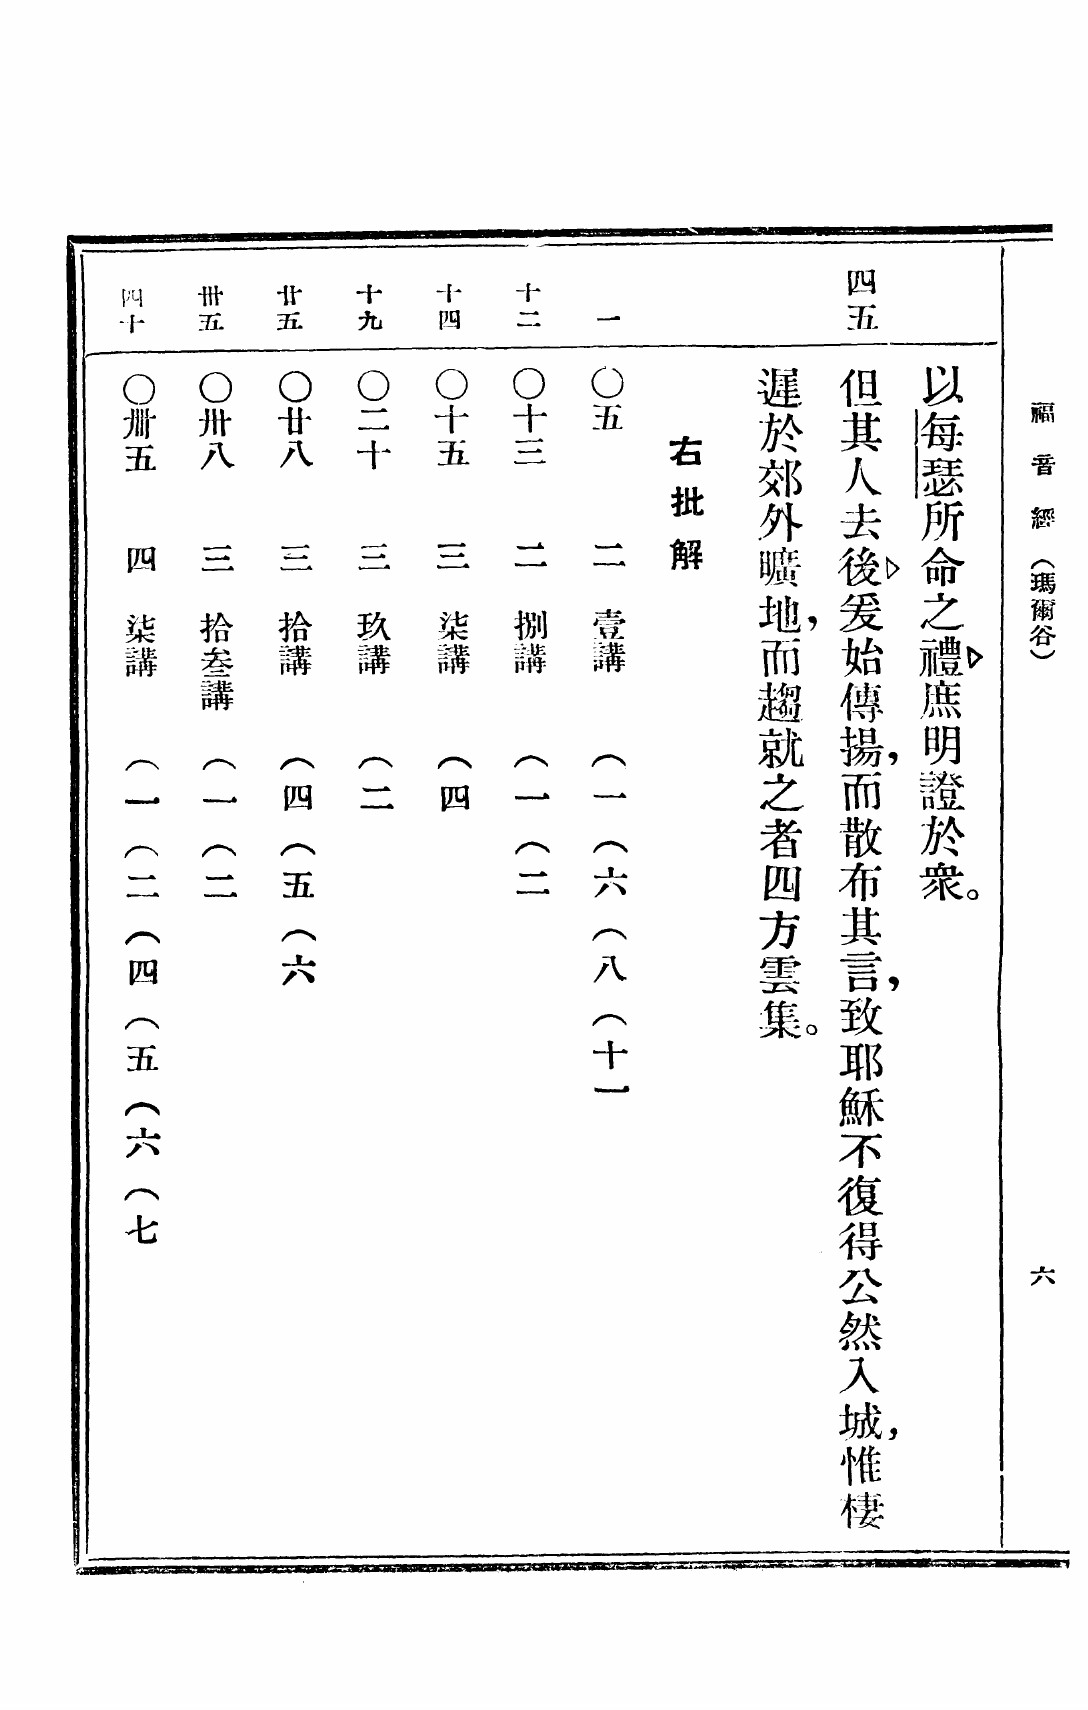 福音經（瑪爾谷） 六
以每瑟所命之禮▷庶明證於衆。
四五 但其人去後▷爰始傳揚，而散布其言，致耶穌不復得公然入城，惟棲
遲於郊外曠地，而趨就之者四方雲集。
右批解
一 〇五 二 壹講 （一（六（八（十一
十二 〇十三 二 捌講 （一（二
十四 〇十五 三 柒講 （四
十九 〇二十 三 玖講 （二
廿五 〇廿八 三 拾講 （四（五（六
卅五 〇卅八 三 拾叁講 （一（二
四十 〇卌五 四 柒講 （一（二（四（五（六（七